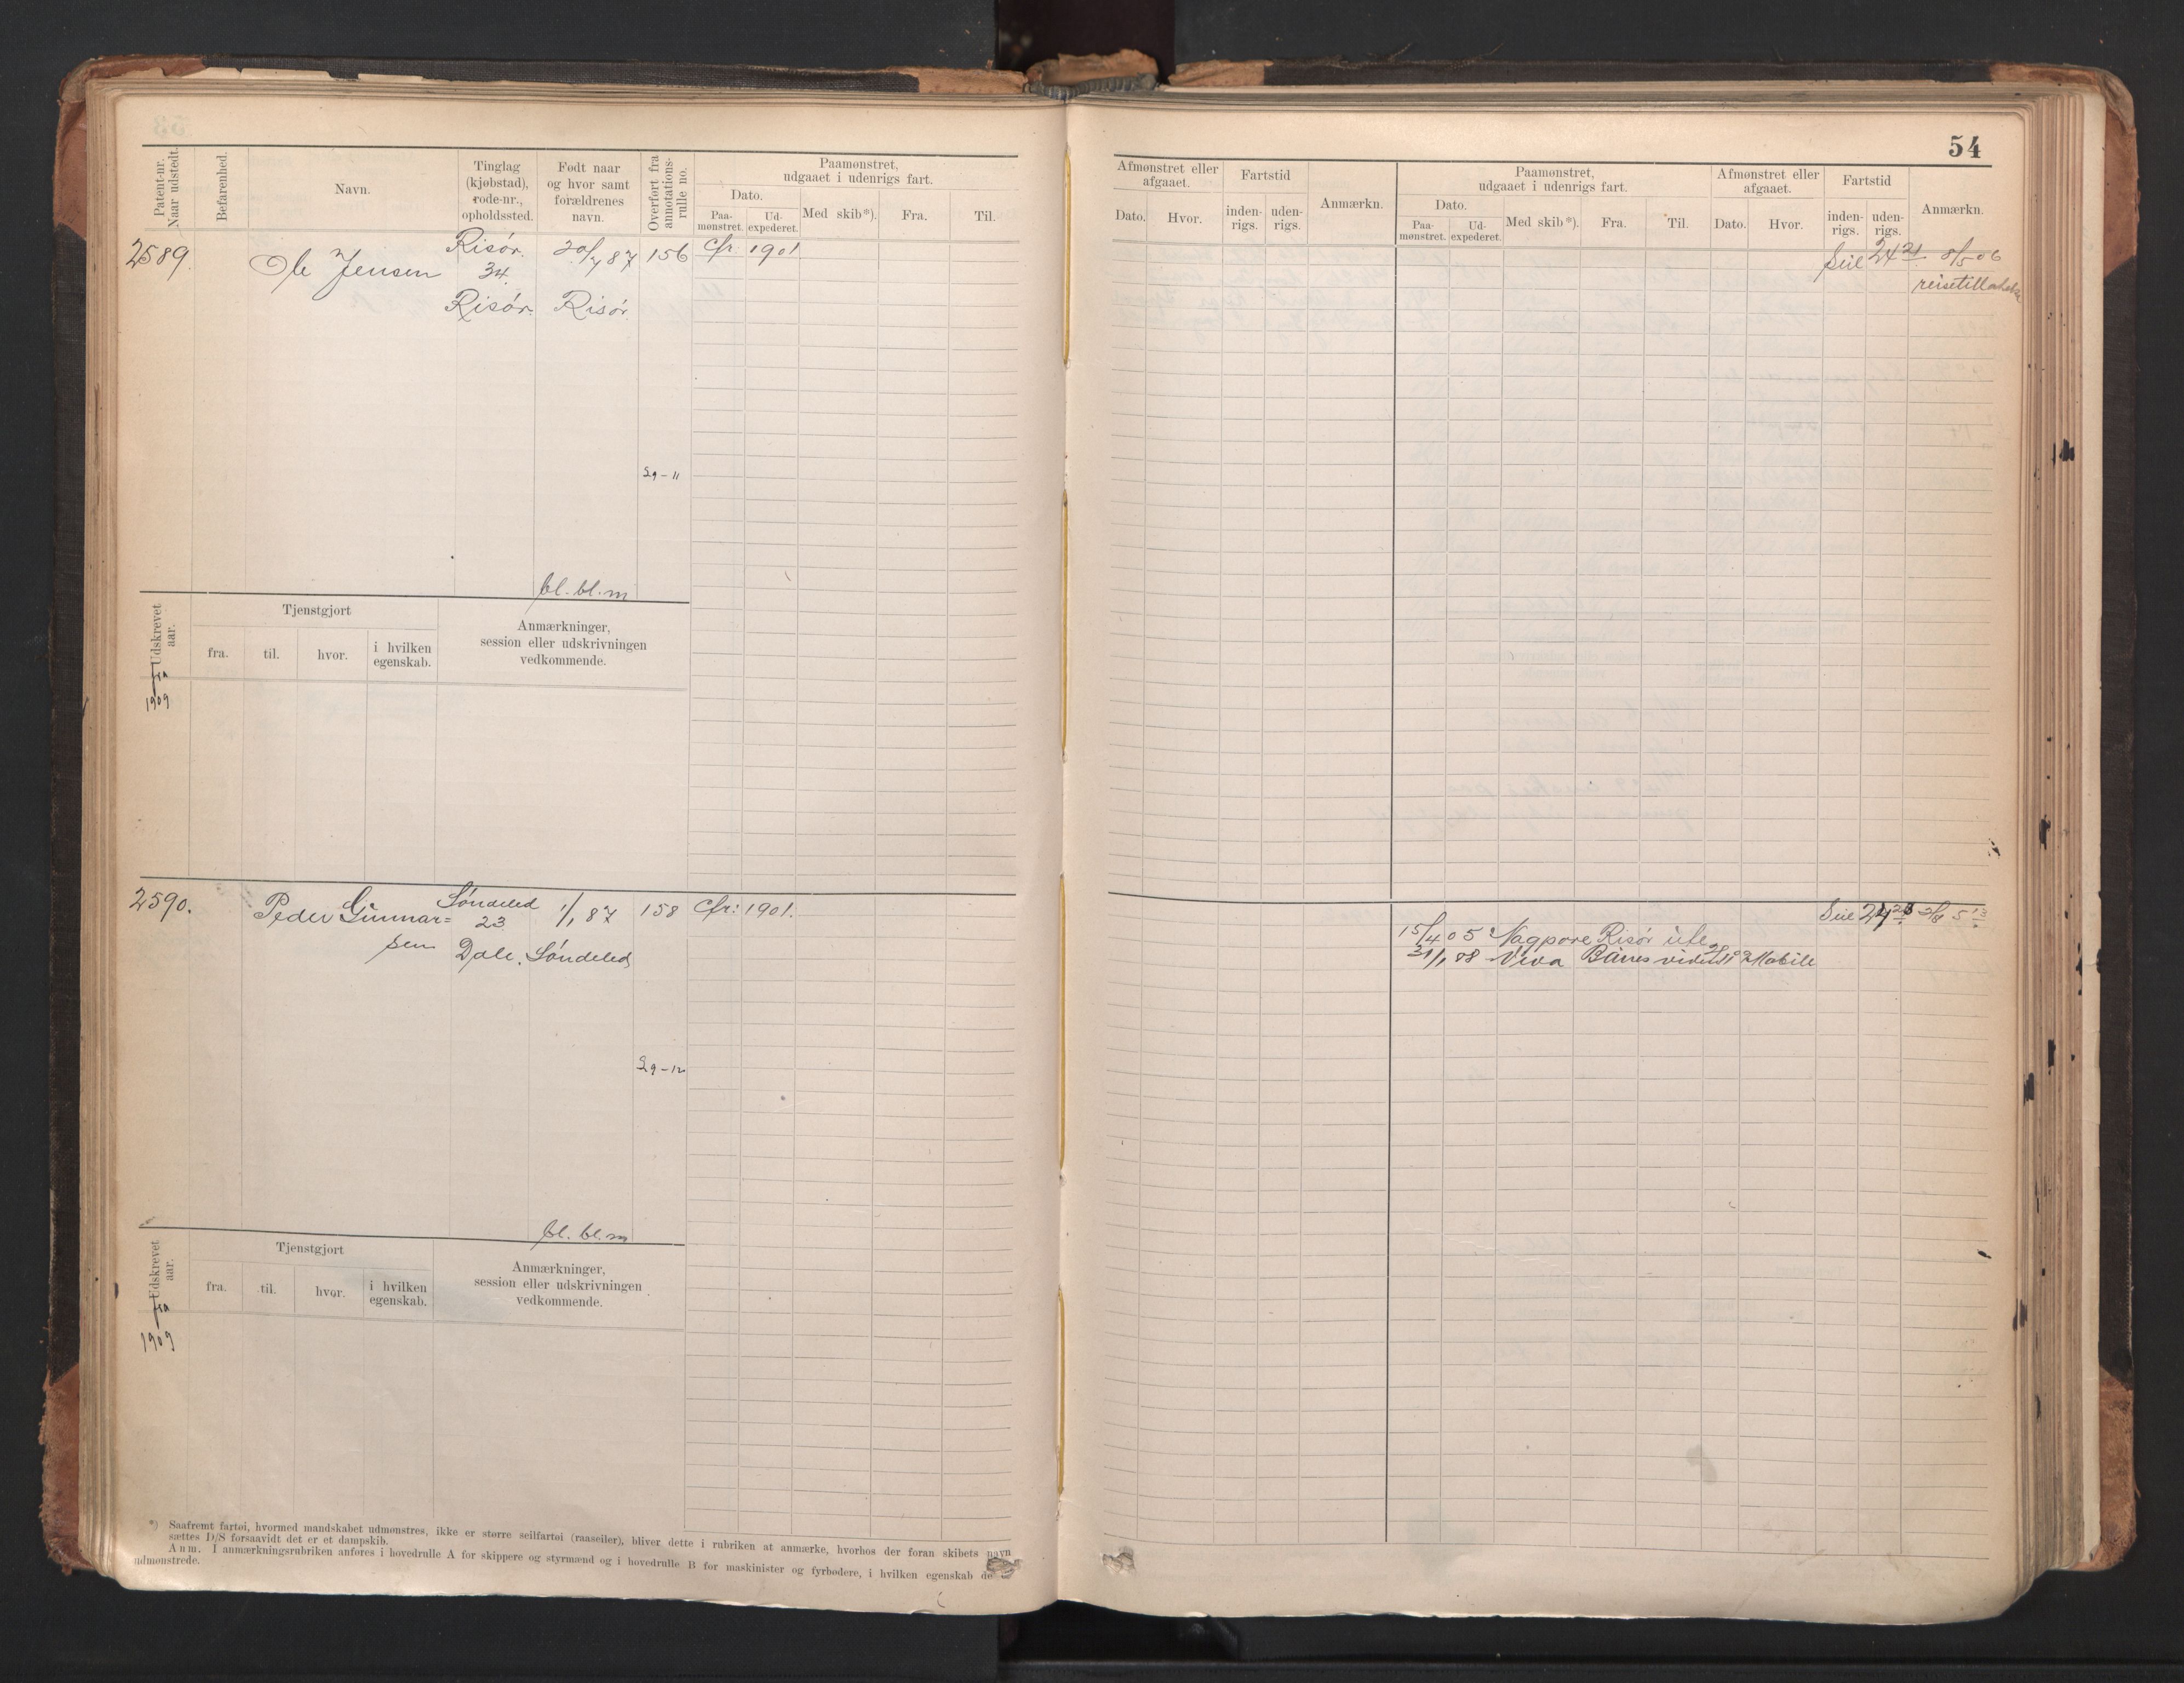 54
Patent-nr.
Naar udstedt.
Befarenhed.
Navn.
Tinglag
(kjøbstad),
rode-nr.,
opholdssted.
Født naar
og hvor samt
forældrenes
navn.
Overført fra
annotations-
rulle no.
Paamønstret,
udgaaet i udenrigs fart.
Dato.
Paa-
mønstret.
Ud-
expederet.
Med skib*).
Fra.
Til.
2589
Ole Jensen
Risør.
34.
Risør.
20/7 87
Risør.
156
Cfr. 1901
29-11
bl. bl. m
Udskrevet
aar.
Tjenstgjort
fra.
til.
hvor.
i hvilken
egenskab.
Anmærkninger,
session eller udskrivningen
vedkommende.
1909
2590.
Peder Gunnar=
sen
Søndeled
23
Dale.
1/1 87
Søndeled
158
Cfr: 1901.
29-12
bl. bl. m
Udskrevet
aar.
Tjenstgjort
fra.
til.
hvor.
i hvilken
egenskab.
Anmærkninger,
session eller udskrivningen
vedkommende.
1909
*) Saafremt fartøi, hvormed mandskabet udmønstres, ikke er større seilfartøi (raaseiler), bliver dette i rubriken at anmærke, hvorhos der foran skibets navn
sættes D/S forsaavidt det er et dampskib.
Anm. I anmærkningsrubriken anføres i hovedrulle A for skippere og styrmænd og i hovedrulle B for maskinister og fyrbødere, i hvilken egenskab de
udmønstrede.
Afmønstret eller
afgaaet.
Dato.
Hvor.
Fartstid
inden-
rigs.
uden-
rigs.
Anmærkn.
Paamønstret,
udgaaet i udenrigs fart.
Dato.
Paa-
mønstret.
Ud-
expederet.
Med skib*).
Fra.
Til.
Afmønstret eller
afgaaet.
Dato.
Hvor.
Fartstid
inden-
rigs.
uden-
rigs.
Anmærkn.
Seil 24 21 8/5 06
Seil
15/4 05 Nagpore Risør ute
Viva Mobile